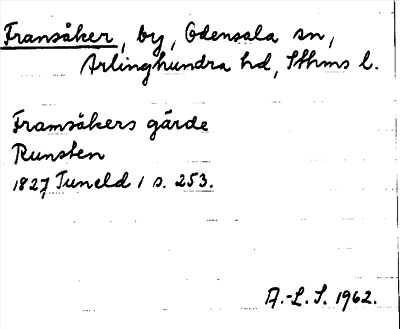 Fransåker, by, Odensala sn,
Ärlinghundra hd, Sthms l.
Framsåkers gärde
Runsten
1827 Tuneld 1 s. 253.
A.-L. S. 1962.